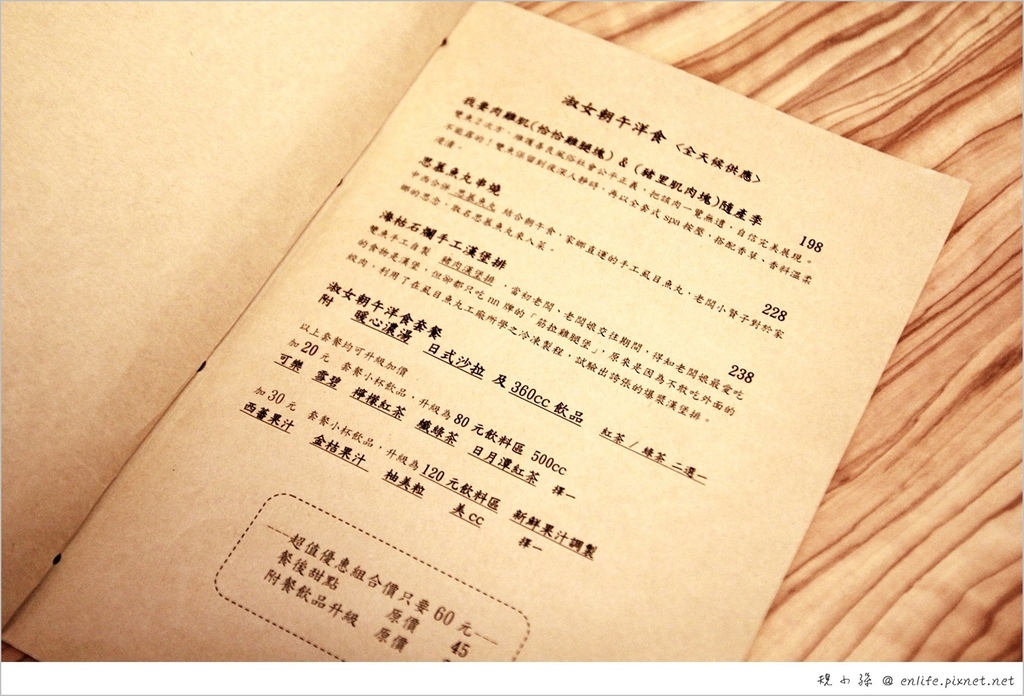 淑女朝午洋食 〈全天候供應〉
我要肉雞肌(恰恰雞腿塊) & (豬里肌肉塊)隨產季 198
雙魚之次方，維護善良風俗社會公平正義，把該肉一覽無遺，自信完美展現。
不能露的！雙魚保留到夜深人靜時，再以全套式 spa 按壓，搭配香草、香料溫柔
浸漬。
思慕魚丸串燒 228
中西合併 思慕魚丸 結合朝午食，家鄉直運的手工虱目魚丸，老闆小賢子對於家
鄉的思念，取名思慕魚丸來入菜。
海枯石爛手工漢堡排 238
雙魚手工自製 豬肉漢堡排，當初老闆、老闆娘交往期間，得知老闆娘最愛吃
的食物是漢堡，但卻都只吃 nn 牌的「筋拉雞腿堡」，原來是因為不敢吃外面的
絞肉，利用了在虱目魚丸工廠所學之冷凍製程，試驗出誇張的爆漿漢堡排。
淑女朝午洋食套餐
附 暖心濃湯 日式沙拉 及 360cc 飲品 紅茶 / 綠茶 二選一
以上套餐均可升級加價
加 20 元 套餐小杯飲品，升級為 80 元飲料區 500cc
可樂 雪碧 檸檬紅茶 纖綠茶 日月潭紅茶 擇一
加 30 元 套餐小杯飲品，升級為 120 元飲料區 新鮮果汁調製
西薑果汁 金桔果汁 柚美粒 美cc 擇一
超值優惠組合價只要 60 元
餐後甜點 原價 45
附餐飲品升級 原價
@ enlife.pixnet.net